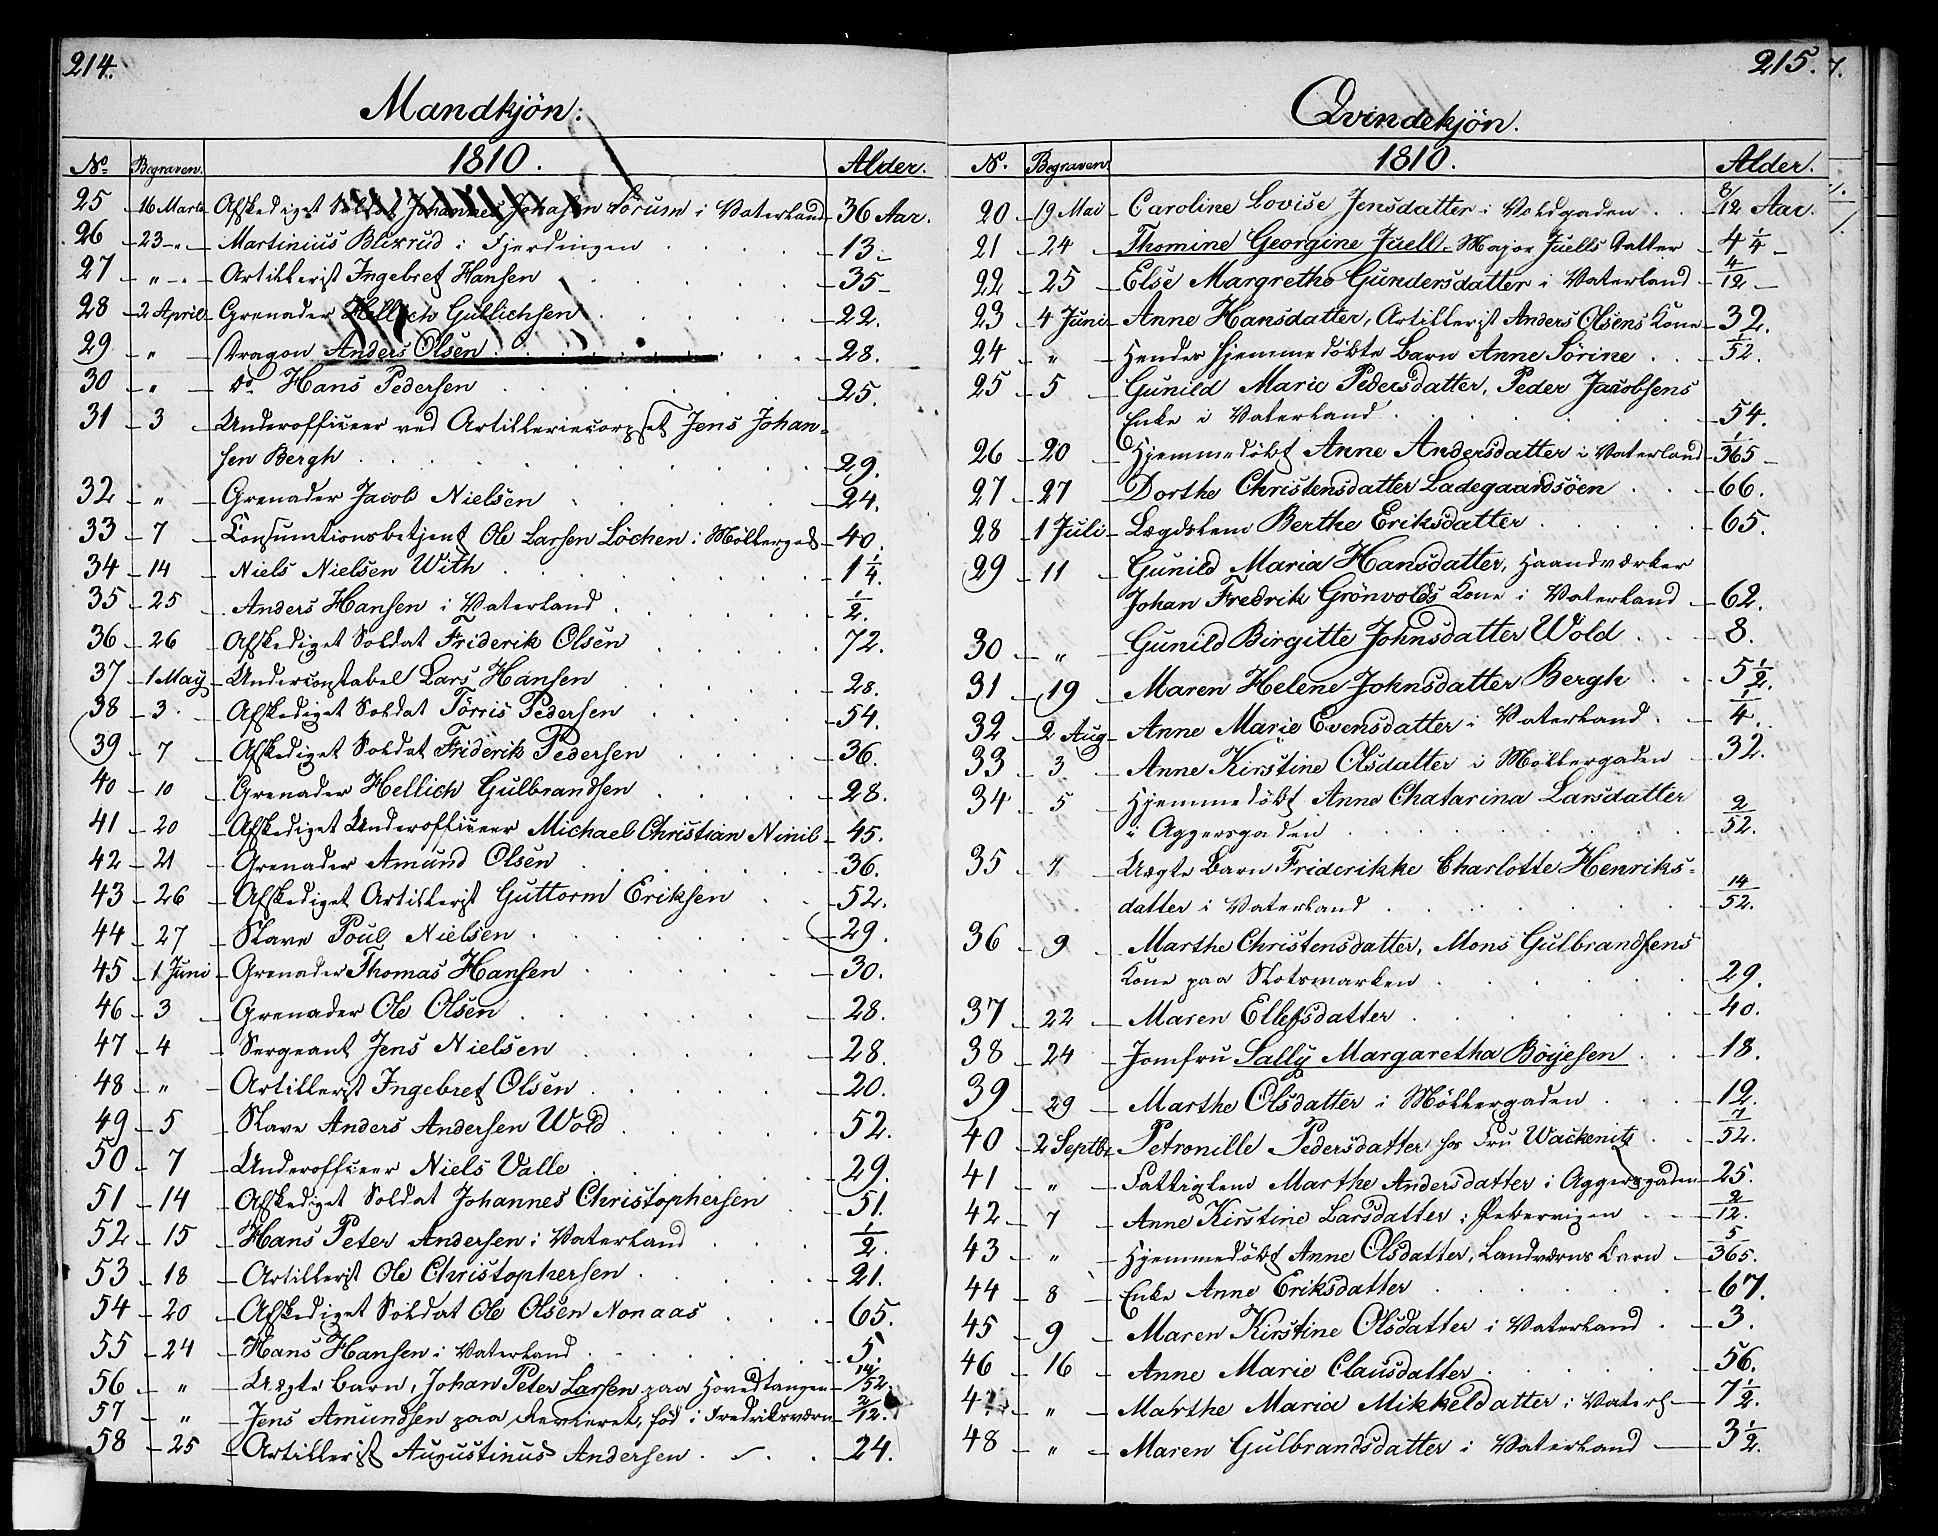 214.
Mandkjön:
No. Begraven. 1810. Alder.
25 16 Marts Afskediget Soldat Johannes Johansen Sörum i Vaterland 36 Aar.
26 23 - " - Martinius Blixrud i Fjerdingen 13.
27 " - " - Artillerist Ingebret Hansen 35
28 2 April Grenader Hellich Gullichsen 22.
29 " Dragon Anders Olsen 28.
30 " do Hans Pedersen 25.
31 3 Underofficeer ved Artilleriecorpset Jens Johan-
sen Bergh 29.
32 " Grenader Jacob Nielsen 24.
33 7 Consumtionsbetjent Ole Larsen Löchen i Möllergad 40.
34 14 Niels Nielsen With 1 1/4.
35 25 Anders Hansen i Vaterland 1/2.
36 26 Afskediget Soldat Friderik Olsen 72.
37 1 May Underconstabel Lars Hansen 28.
38 3 Afskediget Soldat Törris Pedersen 54.
39 7 Afskediget Soldat Friderik Pedersen 36.
40 10 Grenader Hellich Gulbrandsen 28.
41 20 Afskediget Underofficeer Michael Christian Nimib 45.
42 21 Grenader Amund Olsen 36.
43 26 Afskediget Artillerist Guttorm Eriksen 52.
44 27 Slave Poul Nielsen 29.
45 1 Juni Grenader Thomas Hansen 30.
46 3 Grenader Ole Olsen 28.
47 4 Sergeant Jens Nielsen 28.
48 " Artillerist Ingebret Olsen 20.
49 5 Slave Anders Andersen Wold 52.
50 7 Underofficeer Niels Valle 29.
51 14 Afskediget Soldat Johannes Christophersen 51.
52 15 Hans Peter Andersen i Vaterland 1/2.
53 18 Artillerist Ole Christophersen 21.
54 20 Afskediget Soldat Ole Olsen Nonaas 65.
55 24 Hans Hansen i Vaterland 5.
56 " Uægte Barn, Johan Peter Larsen paa Hovedtangen 14/52.
57 " Jens Amundsen paa Revieret, föd i Fredriksværn 2/12.
58 25 Artillerist Augustinus Andersen 24.
215.
Qvindekjön.
No. Begraven. 1810. Alder.
20 19 Mai Caroline Lovise Jensdatter i Voldgaden 8/12 Aar.
21 24 Thomine Georgine Juell, Major Juells Datter 4 1/4
22 25 Else Margrethe Gundersdatter i Vaterland 4/12
23 4 Juni Anne Hansdatter, Artillerist Anders Olsens Kone 32.
24 " Hendes hjemmedöbte Barn Anne Sörine 1/52.
25 5 Gunild Marie Pedersdatter, Peder Jacobsens
Enke i Vaterland 54.
26 20 Hjemmedöbt Anne Andersdatter i Vaterland 1/365
27 27 Dorthe Christensdatter Ladegaardsöen 66.
28 1 Juli Lægdslem Berthe Eriksdatter 65.
29 11 Gunild Maria Hansdatter, Haandværker
Johan Fredrik Grönvolds Kone i Vaterland 62.
30 " Gunild Birgitte Johnsdatter Wold 8.
31 19 Maren Helene Johnsdatter Bergh 5 1/2.
32 2 Aug Anne Marie Evensdatter i Vaterland 1/4.
33 3 Anne Kirstine Olsdatter i Möllergaden 32.
34 5 Hjemmedöbt Anne Chatarina Larsdatter
i Aggersgaden 2/52.
35 7 Uægte Barn Friderikke Charlotte Henriks-
datter i Vaterland 14/52.
36 9 Marthe Christensdatter, Mons Gulbrandsens
Kone paa Slotsmarken 29.
37 22 Maren Ellefsdatter 40.
38 24 Jomfru Sally Margaretha Böyesen 18.
39 29 Marthe Olsdatter i Möllergaden 12.
40 2 Septbr Petronille Pedersdatter hos Fru Wackenitz 7/52.
41 " Fattiglem Marthe Andersdatter i Aggersgaden 25.
42 7 Anne Kirstine Larsdatter i Pebervigen 2/12.
43 " Hjemmedöbt Anne Olsdatter, Landværns Barn 5/365.
44 8 Enke Anne Eriksdatter 67.
45 9 Maren Kirstine Olsdatter i Vaterland 3.
46 16 Anne Marie Clausdatter 56.
47 " Marthe Maria Mikkeldatter i Vaterl 7 1/2.
48 " Maren Gulbrandsdatter i Vaterland 3 1/2.